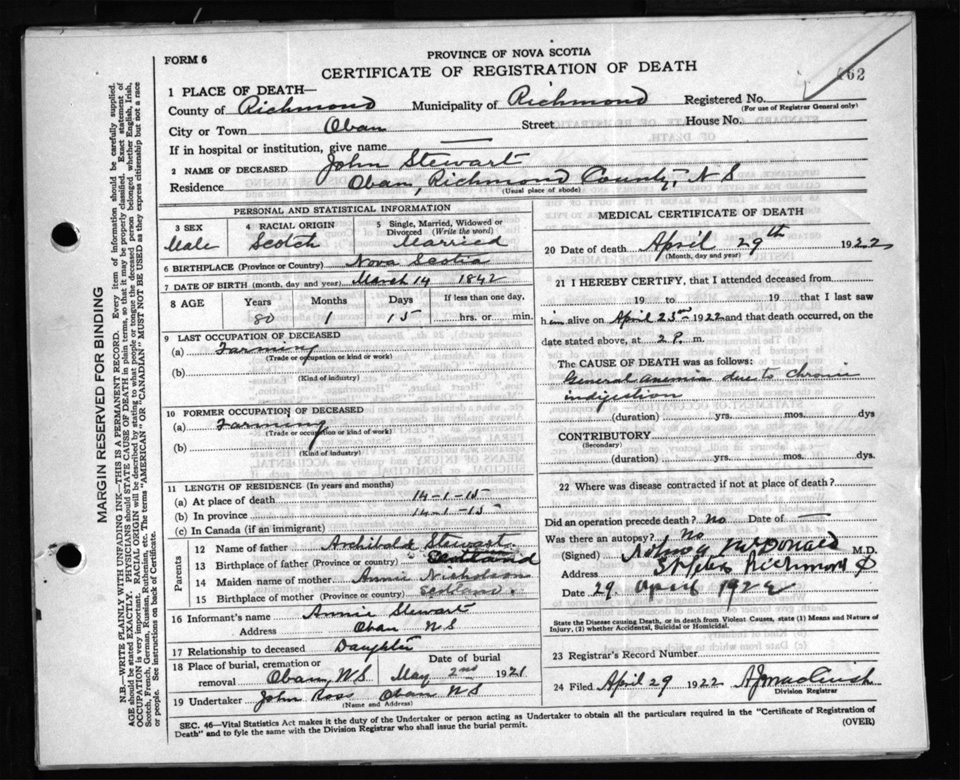 FORM 6
PROVINCE OF NOVA SCOTIA
CERTIFICATE OF REGISTRATION OF DEATH
462
1 PLACE OF DEATH—
County of Richmond Municipality of Richmond Registered No.
(For use of Registrar General only)
City or Town Oban Street House No.
If in hospital or institution, give name —
2 NAME OF DECEASED John Stewart
Residence Oban, Richmond County, N S
(Usual place of abode)
PERSONAL AND STATISTICAL INFORMATION
3 SEX
Male
4 RACIAL ORIGIN
Scotch
5 Single, Married, Widowed or
Divorced (Write the word)
Married
6 BIRTHPLACE (Province or Country) Nova Scotia
7 DATE OF BIRTH (month, day and year) March 14 1842
8 AGE Years Months Days If less than one day,
80 1 15 hrs. or min.
9 LAST OCCUPATION OF DECEASED
(a) Farming
(Trade or occupation or kind or work)
(b)
(Kind of industry)
10 FORMER OCCUPATION OF DECEASED
(a) Farming
(Trade or occupation or kind or work)
(b)
(Kind of industry)
11 LENGTH OF RESIDENCE (In years and months)
(a) At place of death 14-1-15
(b) In province 14-1-15
(c) In Canada (if an immigrant)
Parents
12 Name of father Archibald Stewart
13 Birthplace of father (Province or country) Scotland
14 Maiden name of mother Annie Nicholson
15 Birthplace of mother (Province or country) Scotland
16 Informant's name Annie Stewart
Address Oban N S
17 Relationship to deceased Daughter
18 Place of burial, cremation or Date of burial
removal Oban, N S May 2nd 1921
19 Undertaker John Ross Oban N S
(Name and Address)
MEDICAL CERTIFICATE OF DEATH
20 Date of death April 29th 1922
(Month, day and year)
21 I HEREBY CERTIFY, that I attended deceased from
19 to 19 that I last saw
him alive on April 23rd 1922 and that death occurred, on the
date stated above, at 2 P. m.
The CAUSE OF DEATH was as follows:
General anemia due to chronic
indigestion
(duration) yrs. mos. dys
CONTRIBUTORY
(Secondary)
(duration) yrs. mos. dys.
22 Where was disease contracted if not at place of death?
Did an operation precede death? No Date of —
Was there an autopsy? No
(Signed) McDonald M.D.
Address St Peters Richmond
Date 29 April 1922
State the Disease causing Death, or in death from Violent Causes, state (1) Means and Nature of
Injury, (2) whether Accidental, Suicidal or Homicidal.
23 Registrar's Record Number
24 Filed April 29 1922
Division Registrar
SEC. 46—Vital Statistics Act makes it the duty of the Undertaker or person acting as Undertaker to obtain all the particulars required in the "Certificate of Registration of
Death" and to fyle the same with the Division Registrar who shall issue the burial permit. (OVER)
MARGIN RESERVED FOR BINDING
N.B.—WRITE PLAINLY WITH UNFADING INK—THIS IS A PERMANENT RECORD. Every item of information should be carefully supplied.
AGE should be stated EXACTLY. PHYSICIANS should STATE CAUSE OF DEATH in plain terms, so that it may be properly classified. Exact statement of
OCCUPATION is very important. RACIAL ORIGIN will be described by stating to what people or tongue the deceased person belonged whether English, Irish,
Scotch, French, German, Russian, Ruthenian, etc. The terms "AMERICAN" OR "CANADIAN" MUST NOT BE USED as they express citizenship but not a race
or people. See instructions on back of Certificate.